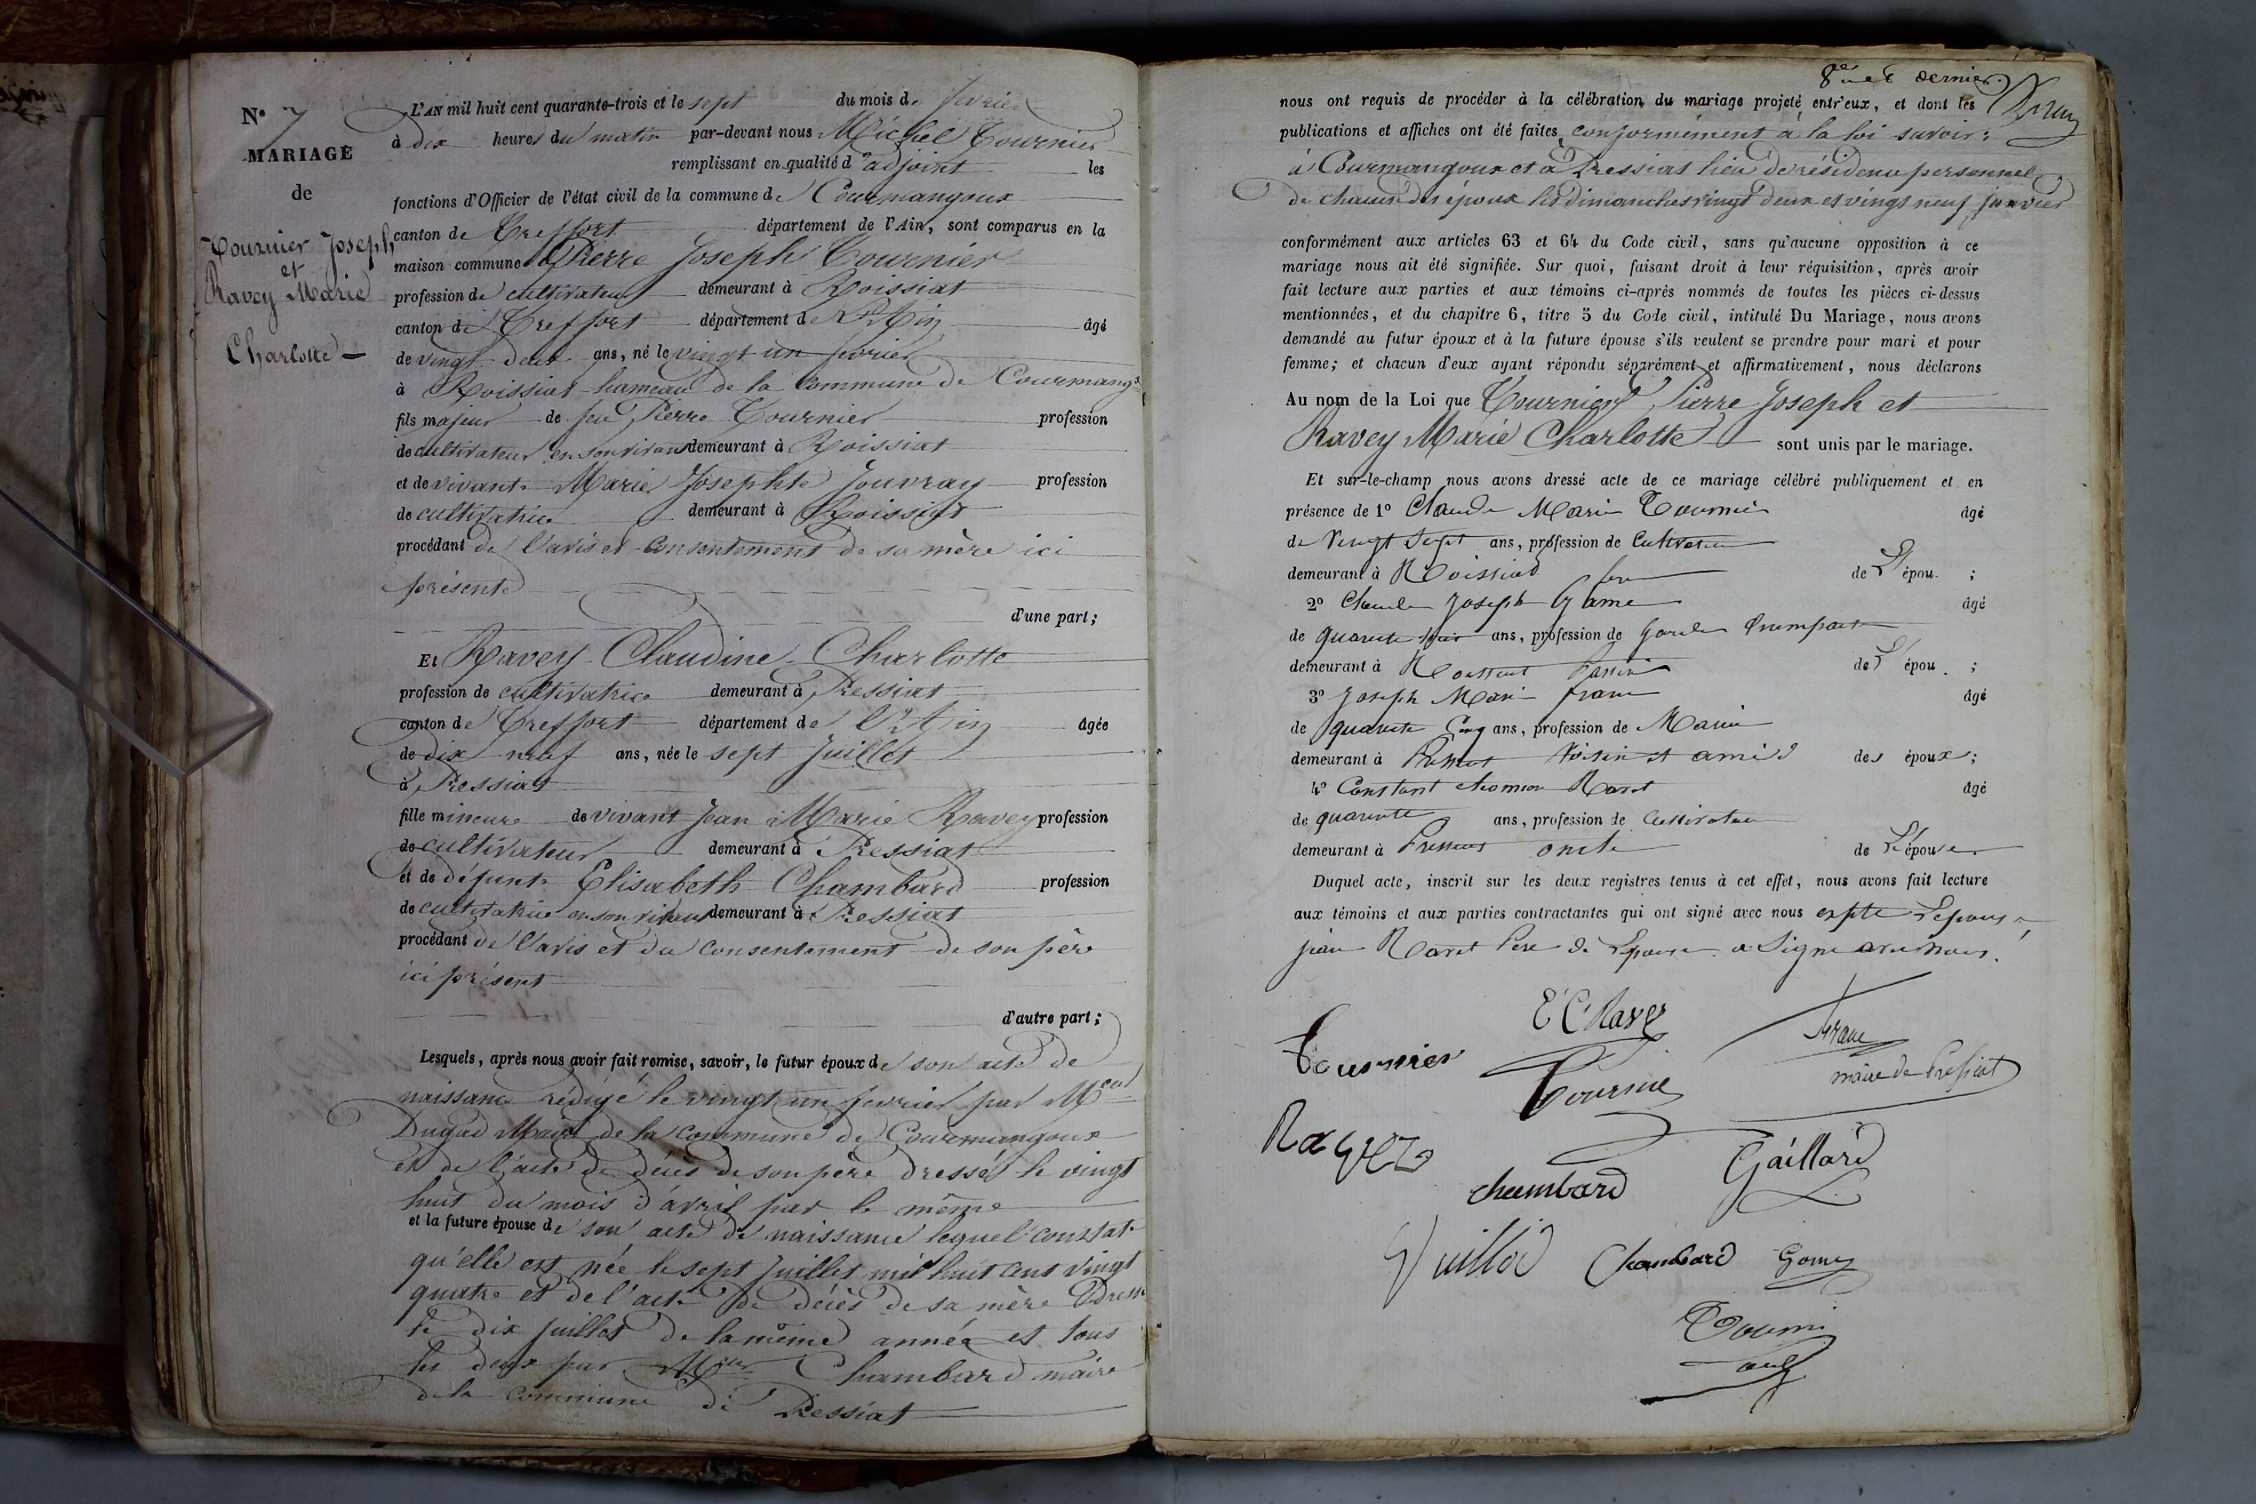 N° 7
MARIAGE
de
Tournier Joseph
et
Ravey Marie
Charlotte
L'AN mil huit cent quarante-trois et le sept du mois de fevrier
à dix heures du matin par-devant nous Michel Tournier
remplissant en qualité d'adjoint les
fonctions d'Officier de l'état civil de la commune de Courmangoux
canton de Treffort département de l'Ain, sont comparus en la
maison commune Pierre Joseph Tournier
profession de cultivateur demeurant à Roissiat
canton de Treffort département de l'Ain âgé
de vingt deux ans, né le vingt un fevrier
à Roissiat hameau de la commune de Courmangx
fils majeur de feu Pierre Tournier profession
de cultivateur en son vivant demeurant à Roissiat
et de vivante Marie Josephte Jouvray profession
de cultivatrice demeurant à Roissiat
procédant de l'avis et consentement de sa mère ici
présente
d'une part;
Et Ravey Claudine Charlotte
profession de cultivatrice demeurant à Pressiat
canton de Treffort département de l'Ain âgée
de dix neuf ans, née le sept Juillet
à Pressiat
fille mineure de vivant Jean Marie Ravey profession
de cultivateur demeurant à Pressiat
et de défunte Elisabeth Chambard profession
de cultivatrice en son vivant demeurant à Pressiat
procédant de l'avis et du consentement de son père
ici présent
d'autre part;
Lesquels, après nous avoir fait remise, savoir, le futur époux de son acte de
naissance rédigé le vingt un fevrier par
Dugad Maire de la commune de Courmangoux
et de l'acte de décès de son père dressés le vingt
huit du mois d'avril par le même
et la future épouse de son acte de naissance lequel constate
qu'elle est née le sept Juillet mil huit cent vingt
quatre et de l'acte de décès de sa mère dressé
le dix juillet de la même année et tous
les deux par Mr Chambard maire
de la commune de Pressiat
dernier
nous ont requis de procéder à la célébration du mariage projeté entr'eux, et dont les
publications et affiches ont été faites conformément à la loi savoir:
à Courmangoux et à Pressiat lieu de résidence personnel
de chacun des époux les dimanches vingt deux et vingt neuf janvier
conformément aux articles 63 et 64 du Code civil, sans qu'aucune opposition à ce
mariage nous ait été signifiée. Sur quoi, faisant droit à leur réquisition, après avoir
fait lecture aux parties et aux témoins ci-après nommés de toutes les pièces ci-dessus
mentionnées, et du chapitre 6, titre 5 du Code civil, intitulé Du Mariage, nous avons
demandé au futur époux et à la future épouse s'ils veulent se prendre pour mari et pour
femme; et chacun d'eux ayant répondu séparément et affirmativement, nous déclarons
Au nom de la Loi que Tournier Pierre Joseph et
Ravey Marie Charlotte sont unis par le mariage.
Et sur-le-champ nous avons dressé acte de ce mariage célébré publiquement et en
présence de 1° Claude Marie Tournier âgé
de Vingt Sept ans, profession de Cultivateur
demeurant à Roissiat de L'épou ;
2° Claude Joseph Game âgé
de quarante ans, profession de Garde
demeurant à de L'épou ;
3° Joseph Marie franc âgé
de quarante Cinq ans, profession de Maire
demeurant à Pressiat voisin et amis des époux;
4° Constant Ravet âgé
de quarante ans, profession de Cultivateur
demeurant à Pressiat oncle de L'épouse
Duquel acte, inscrit sur les deux registres tenus à cet effet, nous avons fait lecture
aux témoins et aux parties contractantes qui ont signé avec nous
Ravet Pere de L'épouse a Signé avec nous.
Tournier
C Ravey
franc
maire de Pressiat
Ravey
chambard
Gaillard
Vuillod
Chambard